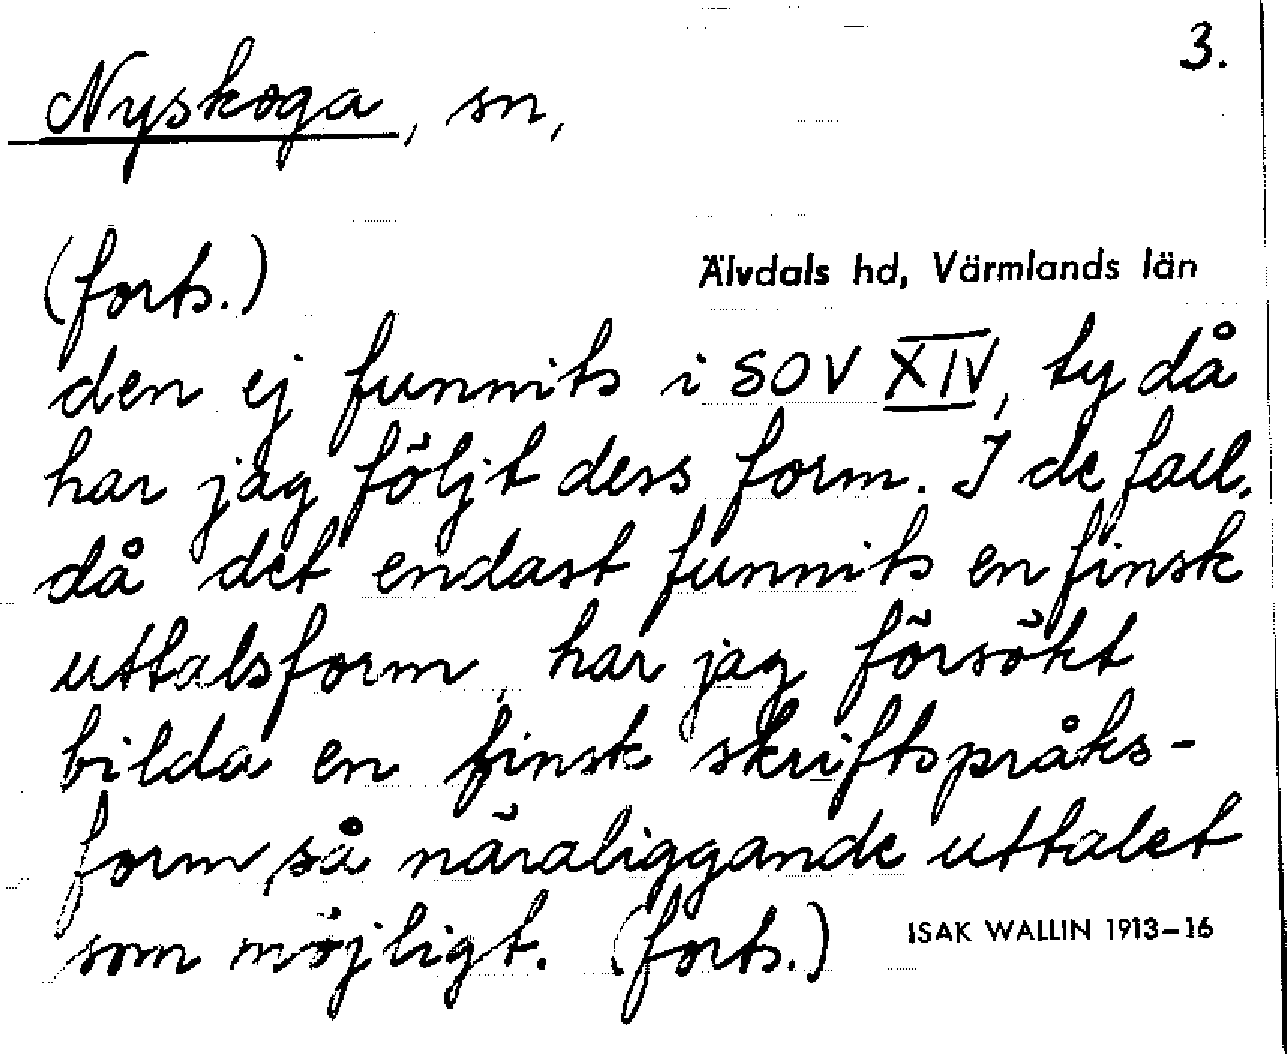 3.
Nyskoga, sn,
(forts.)
Älvdals hd, Värmlands län
den ej funnits i SOV XIV, ty då
har jag följt dess form. I de fall,
då det endast funnits en finsk
uttalsform, har jag försökt
bilda en finsk skriftspråks-
form, så näraliggande uttalet
som möjligt. (forts.)
ISAK WALLIN 1913-16